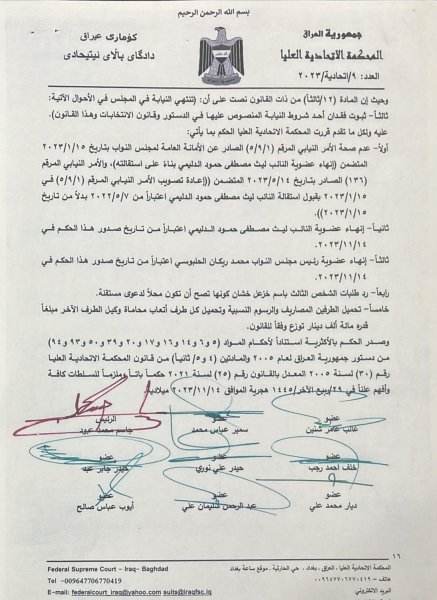 بسم الله الرحمن الرحيم
جمهورية العراق
المحكمة الاتحادية العليا
العدد: ٩/اتحادية/٢٠٢٣
كۆماری عێراق
دادگای باڵای ئیتیحادی
وحيث إن المادة (١٢/ثالثاً) من ذات القانون نصت على أن: (تنتهي النيابة في المجلس في الأحوال الآتية:
ثالثاً- ثبوت فقدان أحد شروط النيابة المنصوص عليها في الدستور وقانون الانتخابات وهذا القانون).
عليه ولكل ما تقدم قررت المحكمة الاتحادية العليا الحكم بما يأتي:
أولاً- عدم صحة الأمر النيابي المرقم (٥/٩/١) الصادر عن الأمانة العامة لمجلس النواب بتاريخ ٢٠٢٣/١/١٥
المتضمن (إنهاء عضوية النائب ليث مصطفى حمود الدليمي بناءً على استقالته)، والأمر النيابي المرقم
(١٣٦) الصادر بتاريخ ٢٠٢٣/٥/١٤ المتضمن ((إعادة تصويب الأمر النيابي المرقم (٥/٩/١) في
٢٠٢٣/١/١٥ بقبول استقالة النائب ليث مصطفى حمود الدليمي اعتباراً من ٢٠٢٢/٥/٧ بدلاً من تاريخ
٢٠٢٣/١/١٥)).
ثانياً- إنهاء عضوية النائب ليث مصطفى حمود الدليمي اعتباراً من تاريخ صدور هذا الحكم في
٢٠٢٣/١١/١٤.
ثالثاً- إنهاء عضوية رئيس مجلس النواب محمد ريكان الحلبوسي اعتباراً من تاريخ صدور هذا الحكم في
٢٠٢٣/١١/١٤.
رابعاً- رد طلبات الشخص الثالث باسم خزعل خشان كونها تصح أن تكون محلاً لدعوى مستقلة.
خامساً- تحميل الطرفين المصاريف والرسوم النسبية وتحميل كل طرف أتعاب محاماة وكيل الطرف الآخر مبلغاً
قدره مائة ألف دينار توزع وفقاً للقانون.
وصدر الحكم بالأكثرية استناداً لأحكام المواد (٥ و٦ و١٤ و١٦ و١٧ و٢٠ و٣٩ و٥٠ و٩٣ و٩٤)
من دستور جمهورية العراق لعام ٢٠٠٥ والمادتين (٤ و٥/ثانياً) من قانون المحكمة الاتحادية العليا
رقم (٣٠) لسنة ٢٠٠٥ المعدل بالقانون رقم (٢٥) لسنة ٢٠٢١ حكماً باتاً وملزماً للسلطات كافة
وأفهم علناً في ٢٩/ربيع الآخر/١٤٤٥ هجرية الموافق ٢٠٢٣/١١/١٤ ميلادية.
الرئيس
جاسم محمد عبود
عضو
سمير عباس محمد
عضو
غالب عامر شنين
عضو
حيدر جابر عبد
عضو
حيدر علي نوري
عضو
خلف أحمد رجب
عضو
أيوب عباس صالح
عضو
عبد الرحمن سليمان علي
عضو
ديار محمد علي
١٦
المحكمة الاتحادية العليا - العراق - بغداد - حي الحارثية - موقع ساعة بغداد
هاتف - ٠٠٩٦٤٧٧٠٦٧٧٠٤١٩
البريد الالكتروني
Federal Supreme Court – Iraq- Baghdad
Tel –009647706770419
E-mail: federalcourt_iraq@yahoo.com suits@iraqfsc.iq